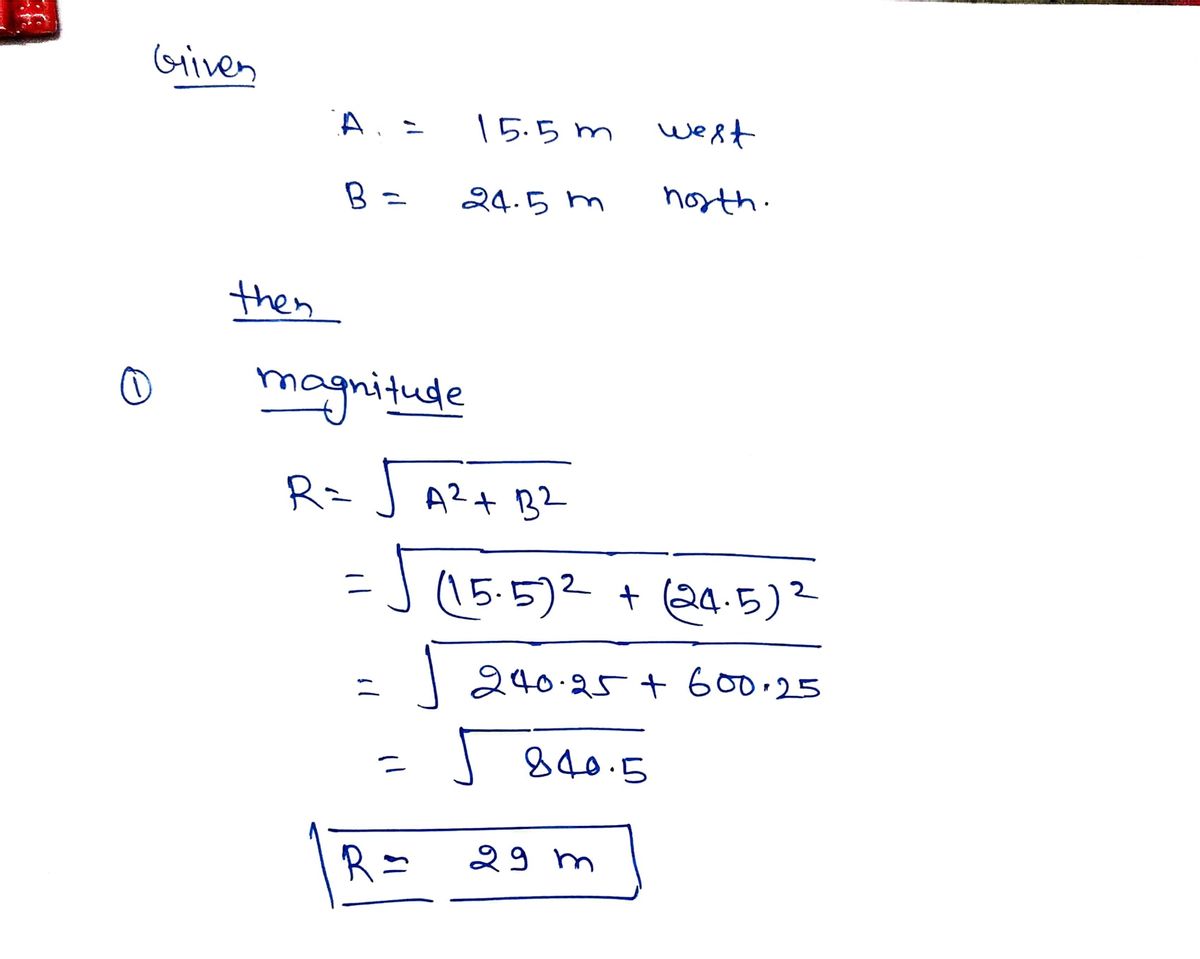 Given
A. = 15.5 m west
B = 24.5 m north.
then
① magnitude
R = √A² + B²
= √(15.5)² + (24.5)²
= √240.25 + 600.25
= √840.5
R = 29 m